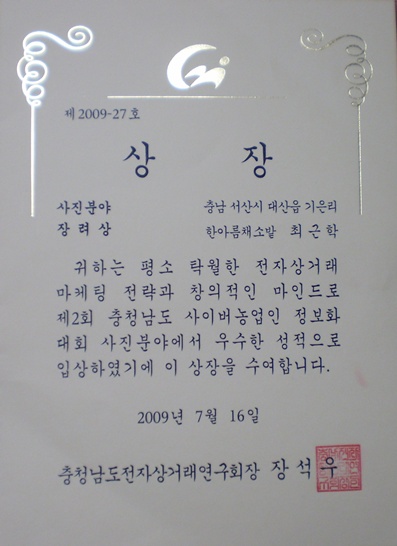 제 2009-27 호
상 장
사진분야 충남 서산시 대산읍 기은리
장려상 한아름채소밭 최근학
귀하는 평소 탁월한 전자상거래
마케팅 전략과 창의적인 마인드로
제2회 충청남도 사이버농업인 정보화
대회 사진분야에서 우수한 성적으로
입상하였기에 이 상장을 수여합니다.
2009년 7월 16일
충청남도전자상거래연구회장 장 석 우